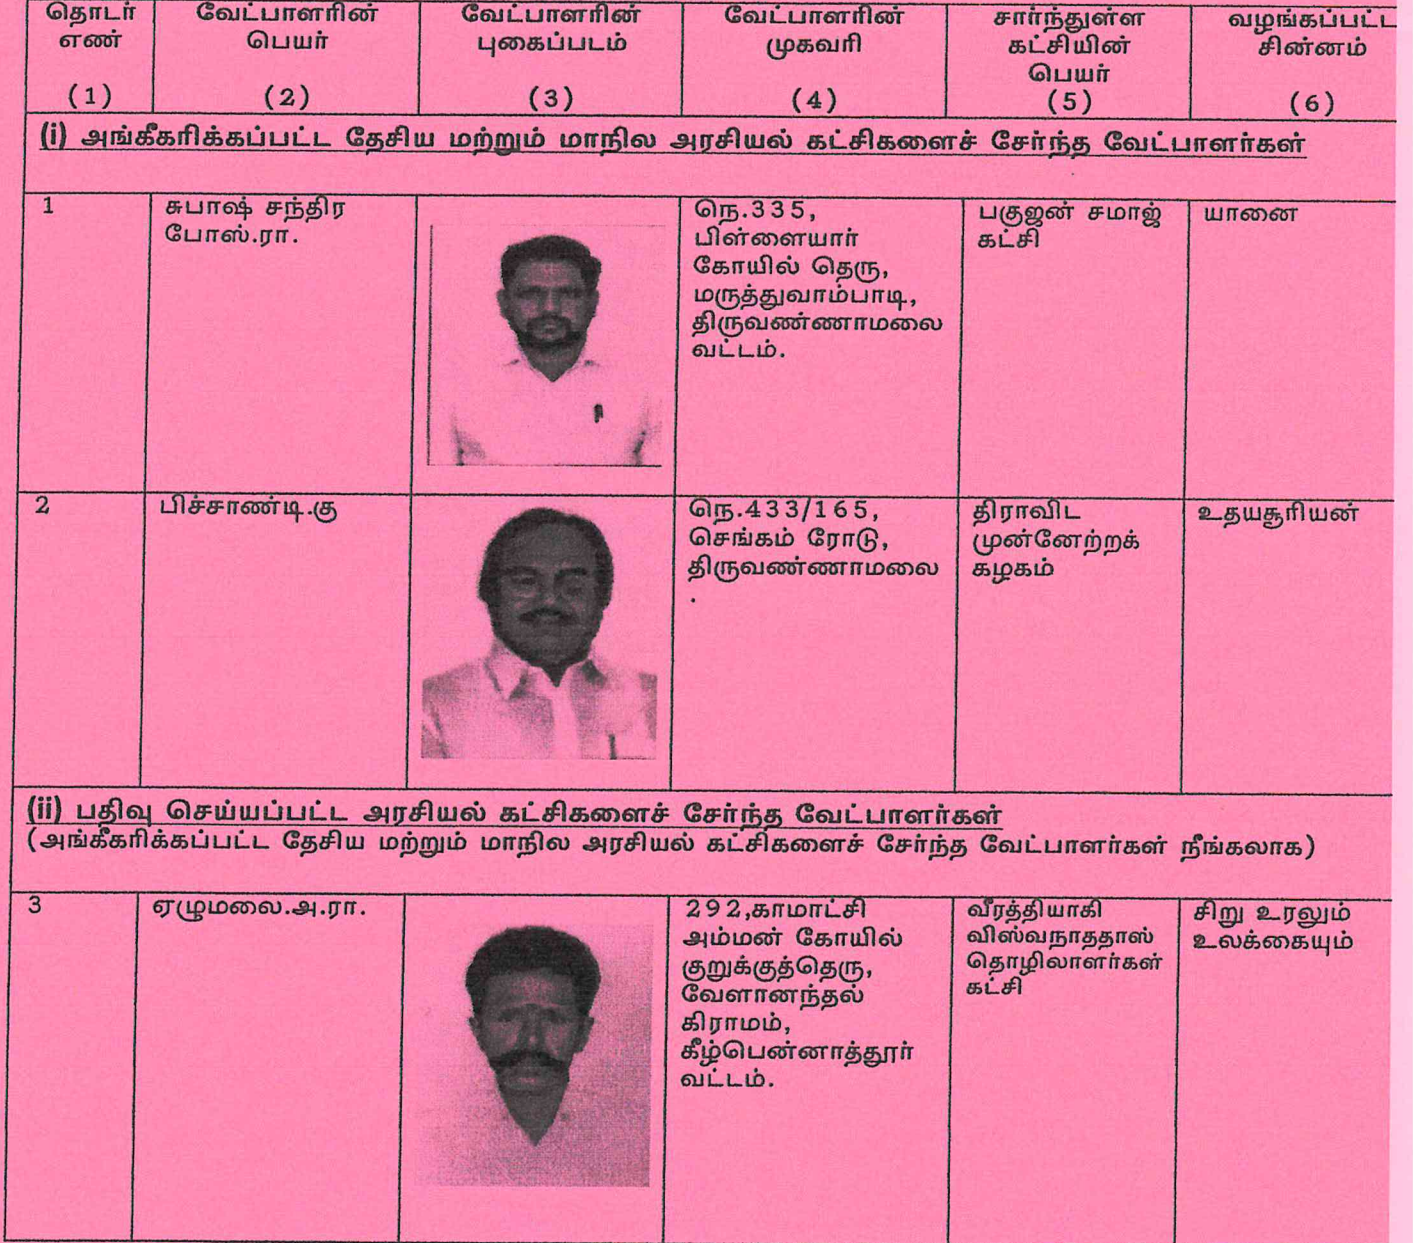 தொடர் எண் (1)
வேட்பாளரின் பெயர் (2)
வேட்பாளரின் புகைப்படம் (3)
வேட்பாளரின் முகவரி (4)
சார்ந்துள்ள கட்சியின் பெயர் (5)
வழங்கப்பட்ட சின்னம் (6)
(i) அங்கீகரிக்கப்பட்ட தேசிய மற்றும் மாநில அரசியல் கட்சிகளைச் சேர்ந்த வேட்பாளர்கள்
1
சுபாஷ் சந்திர
போஸ்.ரா.
நெ.335,
பிள்ளையார்
கோயில் தெரு,
மருத்துவாம்பாடி,
திருவண்ணாமலை
வட்டம்.
பகுஜன் சமாஜ்
கட்சி
யானை
2
பிச்சாண்டி.கு
நெ.433/165,
செங்கம் ரோடு,
திருவண்ணாமலை
.
திராவிட
முன்னேற்றக்
கழகம்
உதயசூரியன்
(ii) பதிவு செய்யப்பட்ட அரசியல் கட்சிகளைச் சேர்ந்த வேட்பாளர்கள்
(அங்கீகரிக்கப்பட்ட தேசிய மற்றும் மாநில அரசியல் கட்சிகளைச் சேர்ந்த வேட்பாளர்கள் நீங்கலாக)
3
ஏழுமலை.அ.ரா.
292,காமாட்சி
அம்மன் கோயில்
குறுக்குத்தெரு,
வேளானந்தல்
கிராமம்,
கீழ்பென்னாத்தூர்
வட்டம்.
வீரத்தியாகி
விஸ்வநாததாஸ்
தொழிலாளர்கள்
கட்சி
சிறு உரலும்
உலக்கையும்